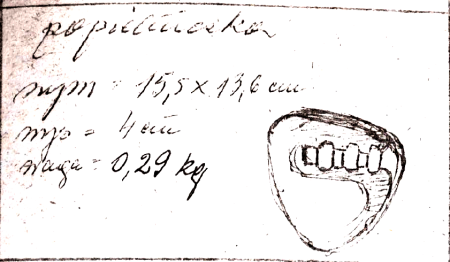 popielniczka
wym = 15,5 x 13,6 cm
wys = 4 cm
waga = 0,29 kg